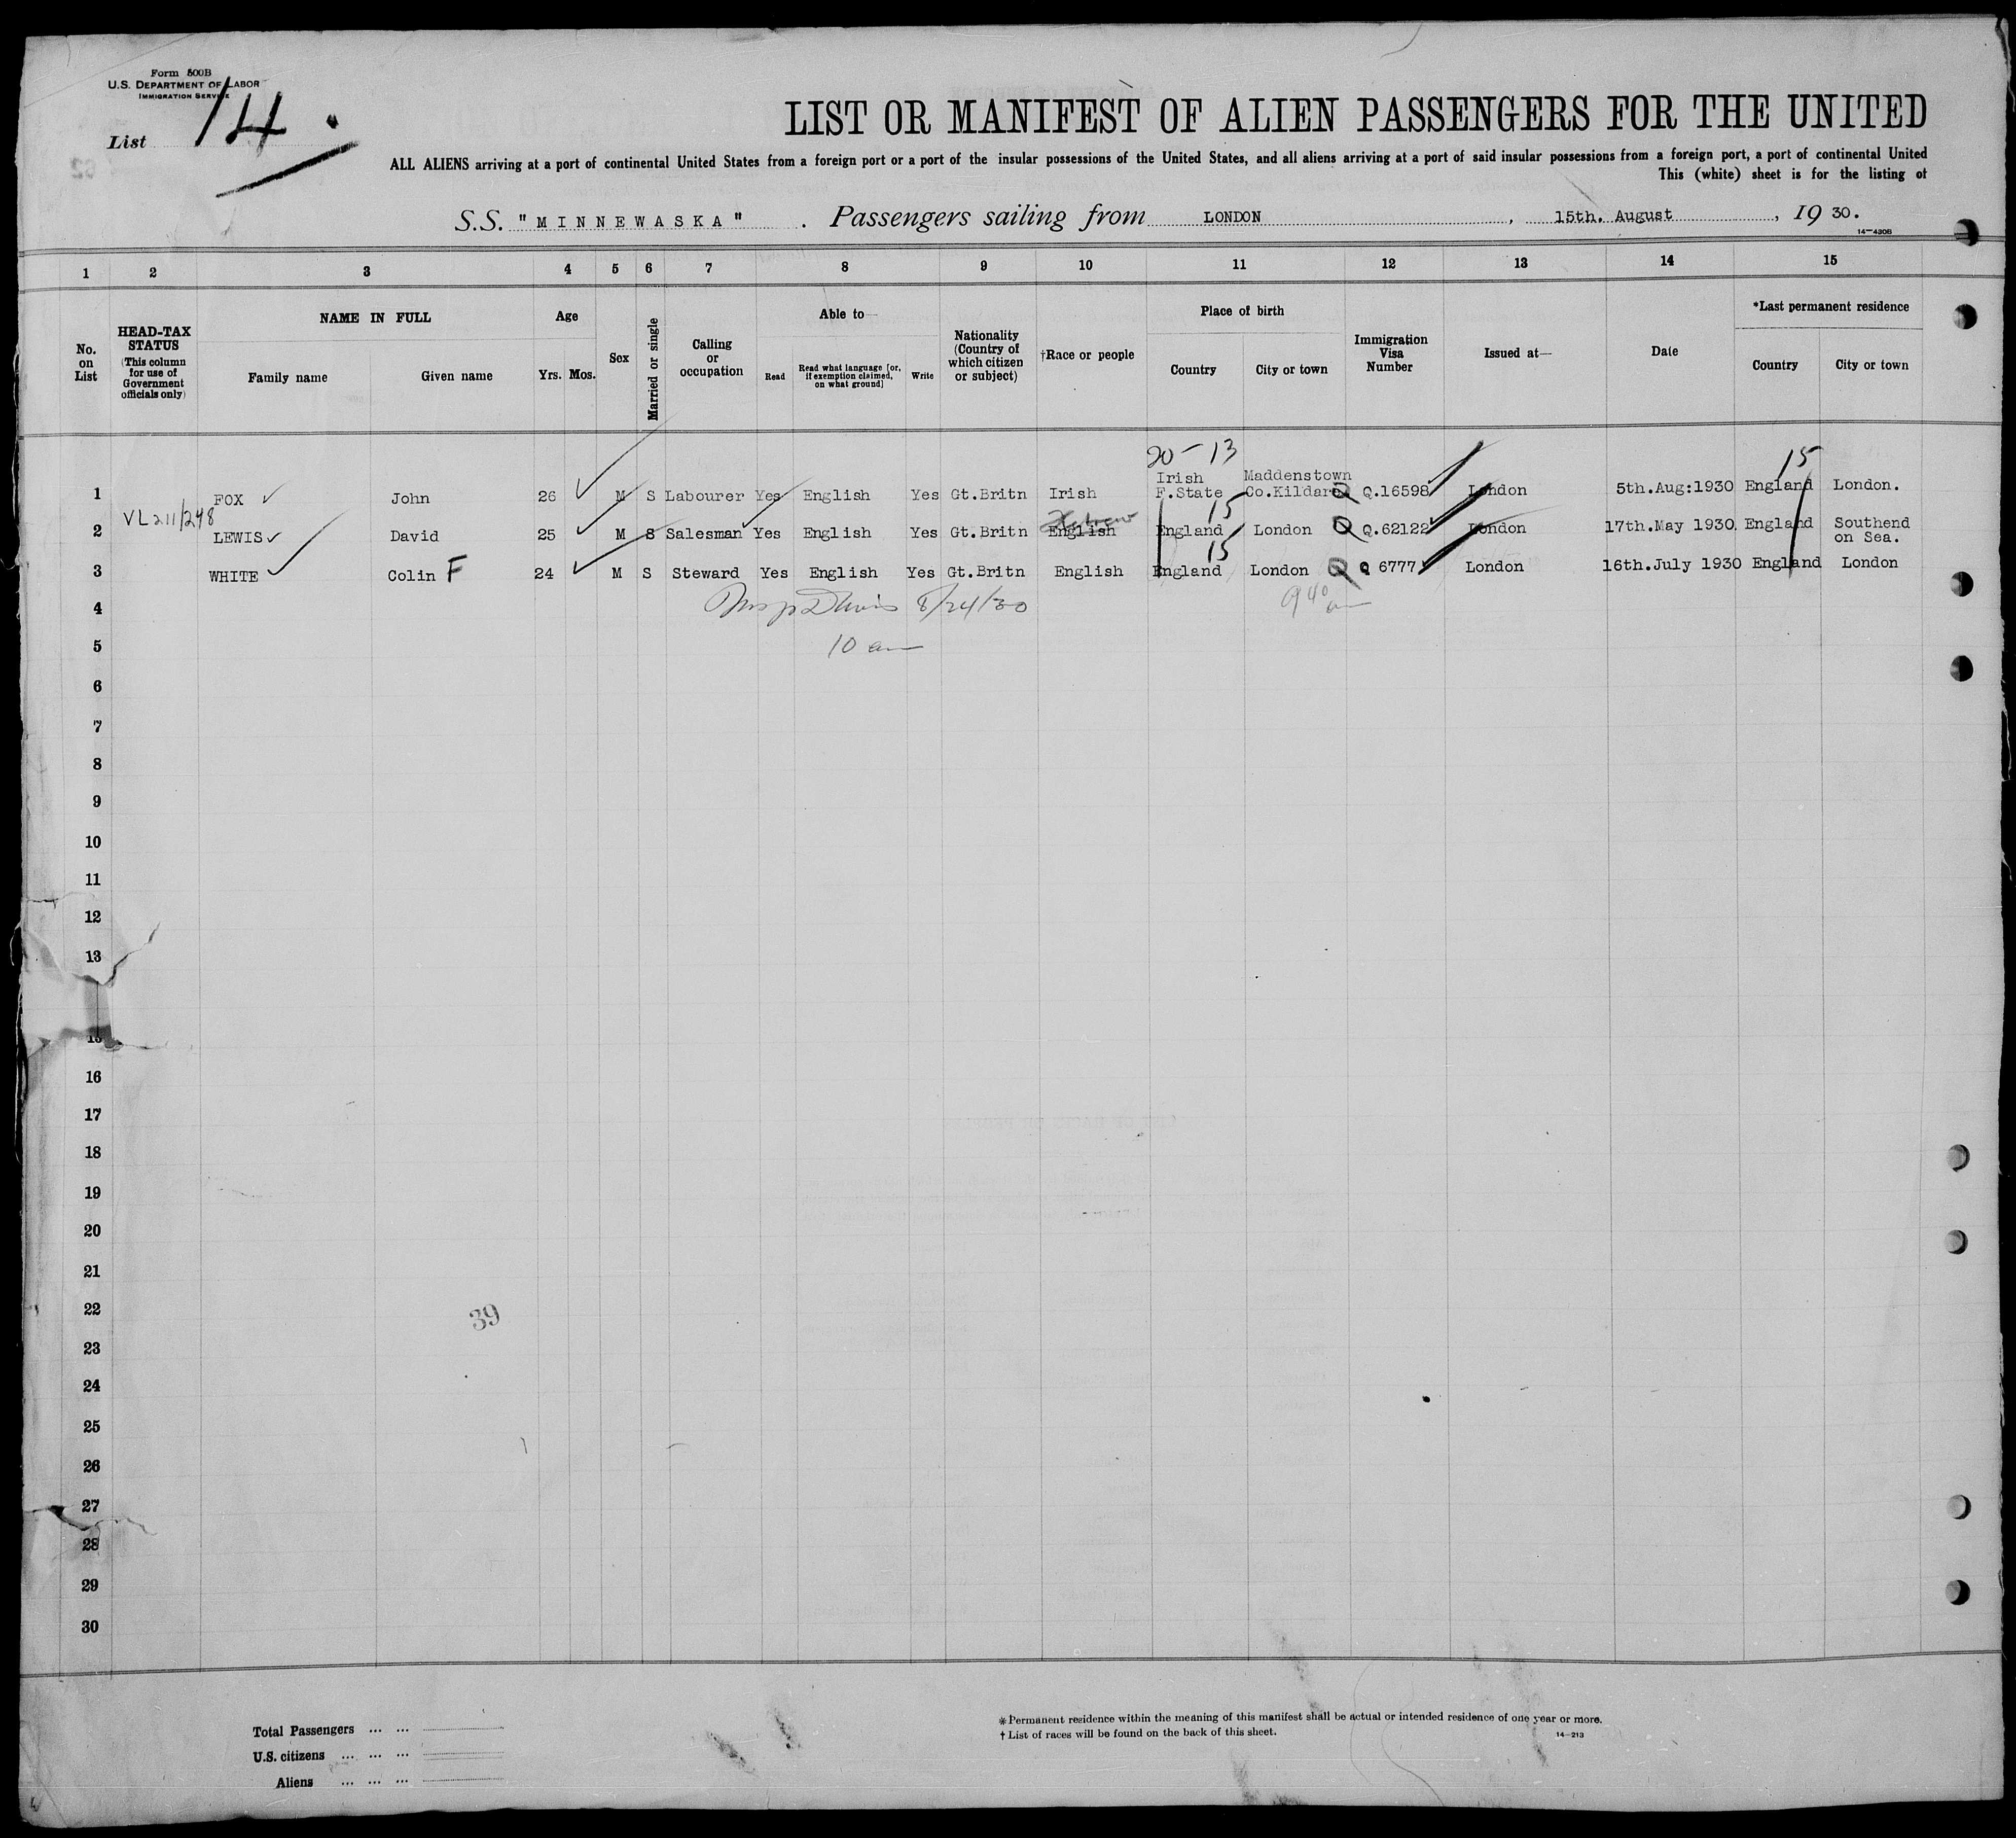 Form 500B
U.S. DEPARTMENT OF LABOR
IMMIGRATION SERVICE
List 14.
LIST OR MANIFEST OF ALIEN PASSENGERS FOR THE UNITED
ALL ALIENS arriving at a port of continental United States from a foreign port or a port of the insular possessions of the United States, and all aliens arriving at a port of said insular possessions from a foreign port, a port of continental United
This (white) sheet is for the listing of
S.S. "MINNEWASKA". Passengers sailing from LONDON, 15th. August, 19 30.
14-430B
1 2 3 4 5 6 7 8 9 10 11 12 13 14 15
No. on List
HEAD-TAX STATUS (This column for use of Government officials only)
NAME IN FULL
Family name Given name
Age
Yrs. Mos.
Sex
Married or single
Calling or occupation
Able to—
Read Read what language [or, if exemption claimed, on what ground] Write
Nationality (Country of which citizen or subject)
†Race or people
Place of birth
Country City or town
Immigration Visa Number
Issued at—
Date
*Last permanent residence
Country City or town
20-13 15
1 FOX John 26 M S Labourer Yes English Yes Gt.Britn Irish Irish F.State Maddenstown Co.Kildare Q.16598 London 5th.Aug:1930 England London.
VL211/248
15
2 LEWIS David 25 M S Salesman Yes English Yes Gt.Britn Hebrew English England London Q.62122 London 17th.May 1930 England Southend on Sea.
15
3 WHITE Colin F 24 M S Steward Yes English Yes Gt.Britn English England London Q 6777 London 16th.July 1930 England London
4 8/24/30 9 40 am
5 10 am
6
7
8
9
10
11
12
13
15
16
17
18
19
20
21
22
39
23
24
25
26
27
28
29
30
Total Passengers ... ...
U.S. citizens ... ... ...
Aliens ... ... ...
* Permanent residence within the meaning of this manifest shall be actual or intended residence of one year or more.
† List of races will be found on the back of this sheet.
14-213